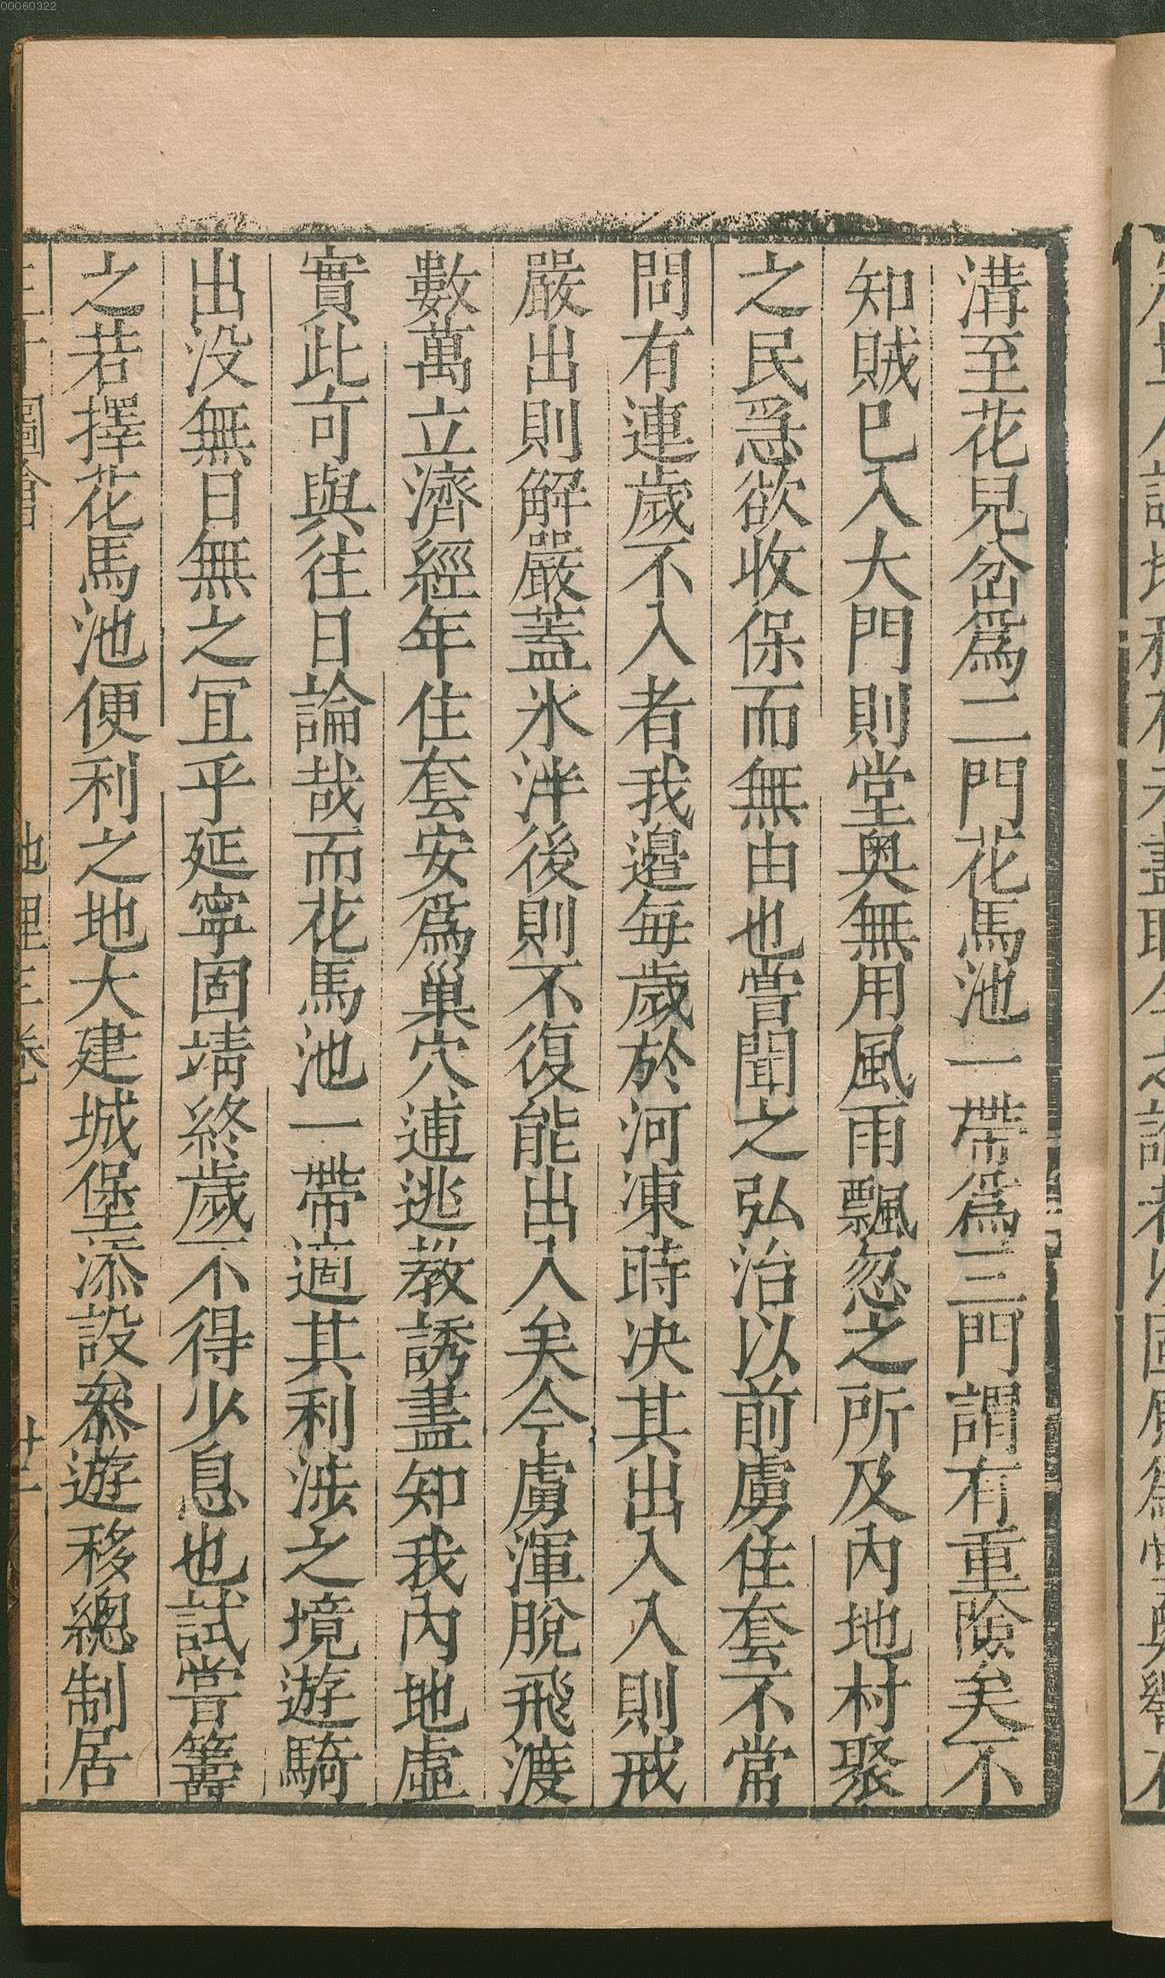 溝至花見岔爲二門花馬池一帶爲三門謂有重險矣不
知賊巳入大門則堂奥無用風雨飄忽之所及内地村聚
之民急欲收保而無由也嘗聞之弘治以前虜住套不常
問有連歲不入者我邉每歲於河凍時决其出入入則戒
嚴出則解嚴蓋氷泮後則不復能出入矣今虜渾脫飛渡
數萬立濟經年住套安爲巢穴逋逃教誘盡知我内地虛
實此可與往日論哉而花馬池一帶適其利涉之境遊騎
出没無日無之冝乎延寧固靖終歲不得少息也試嘗籌
之若擇花馬池便利之地大建城堡添設叅遊移總制居
圖會 地理三卷 廿一
00060322